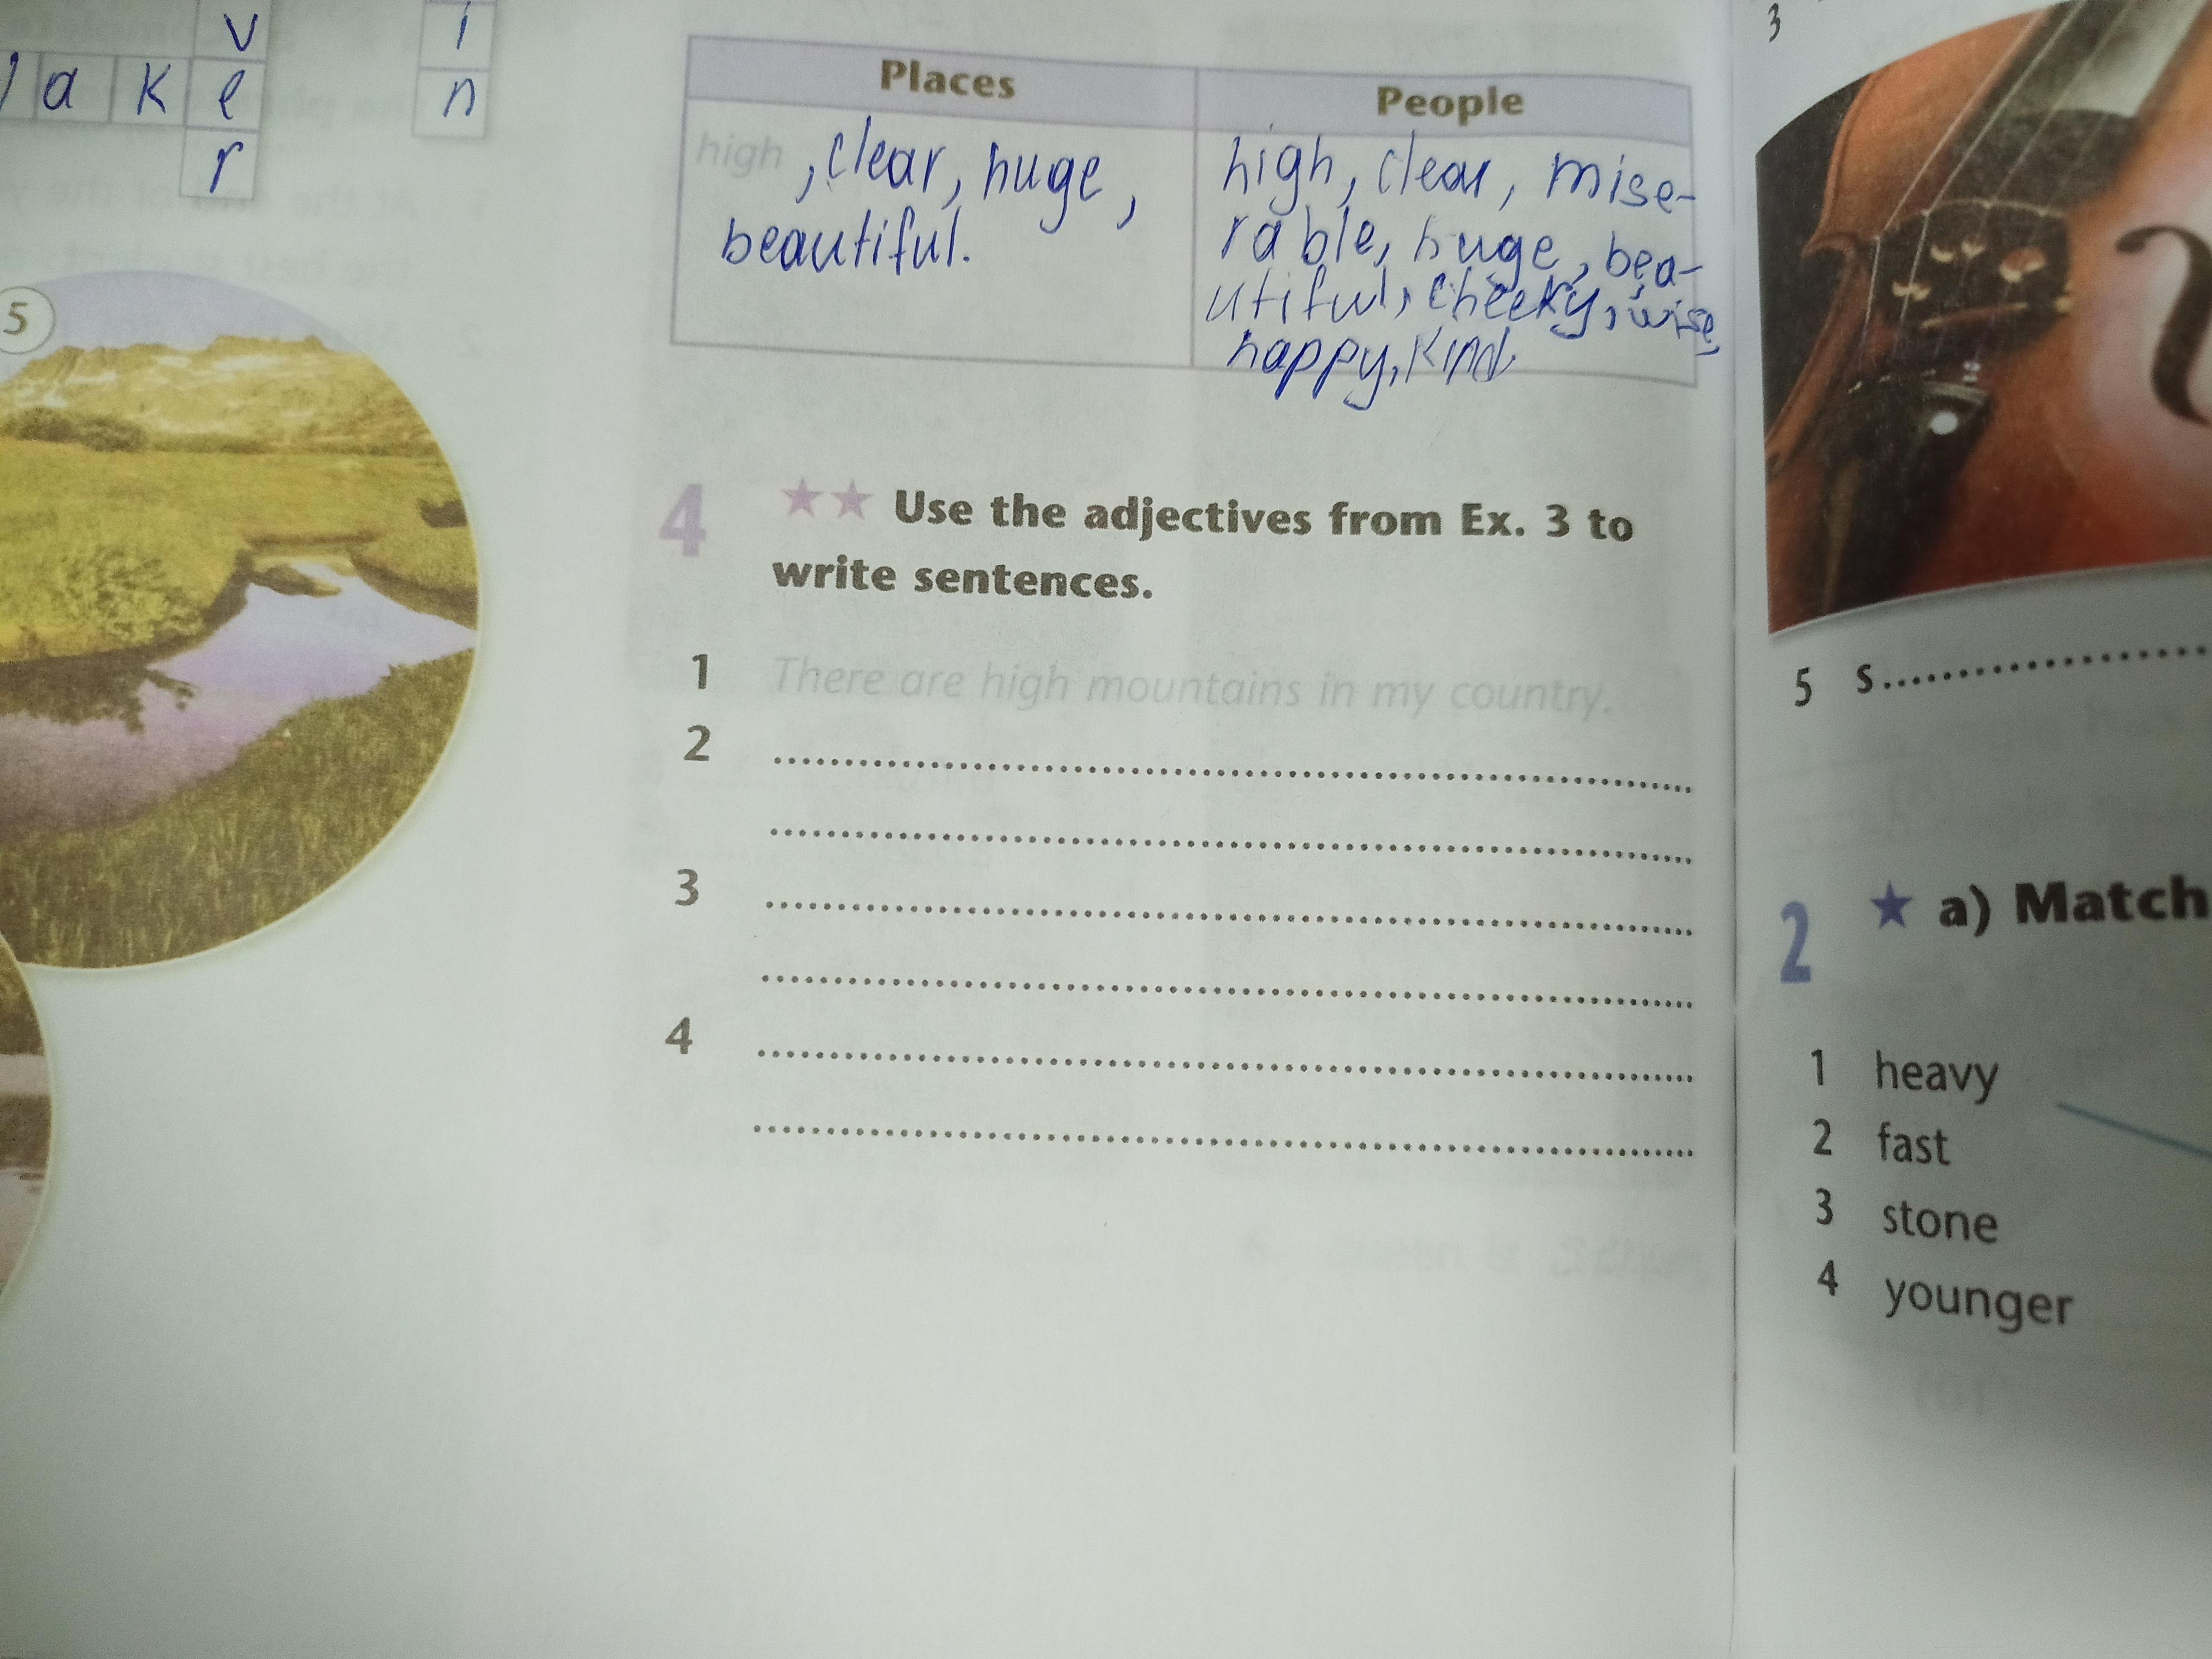 v
i
l a k e
n
r
Places
People
high , clear, huge,
beautiful.
high, clear, mise-
rable, huge, bea-
utiful, cheeky, wise,
happy, kind
5
4 ★★ Use the adjectives from Ex. 3 to
write sentences.
1 There are high mountains in my country.
2
3
4
3
5 s
2 ★ a) Match
1 heavy
2 fast
3 stone
4 younger